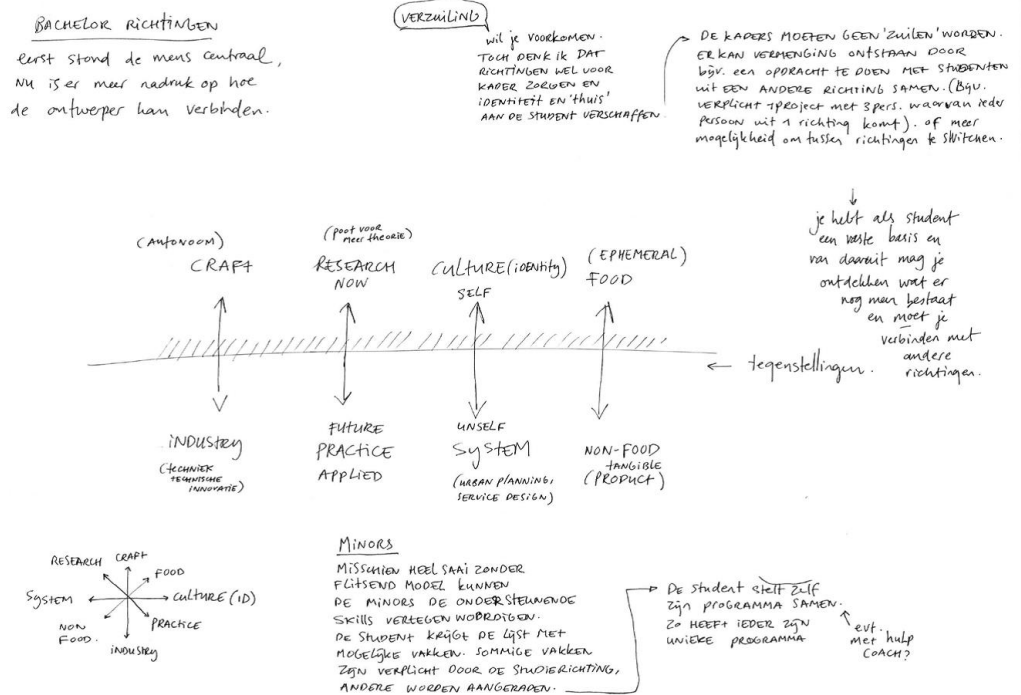 BACHELOR RICHTINGEN
eerst stond de mens centraal,
NU is er meer nadruk op hoe
de ontwerper kan verbinden.
VERZUILING
wil je VOORKOMEN.
TOCH DENK IK DAT
RICHTINGEN WEL VOOR
KADER ZORGEN EN
iDENTiTEIT EN 'thuis'
AAN DE STUDENT VERSCHAFFEN.
DE KADERS MOETEN GEEN 'ZUILEN' WORDEN.
ER KAN VERMENGING ONTSTAAN DOOR
bijv. EEN OPDRACHT TE DOEN MET STUDENTEN
UIT EEN ANDERE RICHTING SAMEN. (Bijv.
VERPLICHT 1 PROJECT MET 3 pers. waarvan ieder
PERSOON UIT 1 richting komt). of MEER
mogelijkheid om tussen richtingen te SWITCHEN.
je hebt als student
een vaste basis en
van daaruit mag je
ontdekken wat er
nog meer bestaat
en moet je
verbinden met
andere
richtingen.
(AUTONOOM)
CRAFT
(poot voor
meer theorie)
RESEARCH
NOW
CULTURE (identity)
SELF
(EPHEMERAL)
FOOD
tegenstellingen.
iNDUSTRY
(techniek
TECHNISCHE
INNOVATIE)
FUTURE
PRACTICE
APPLIED
UNSELF
SYSTEM
(URBAN PLANNING,
SERVICE DESIGN)
NON-FOOD
TANGIBLE
(PRODUCT)
RESEARCH
CRAFT
FOOD
SYSTEM
CULTURE (ID)
NON
FOOD.
PRACTICE
INDUSTRY
MINORS
MISSCHIEN HEEL SAAI ZONDER
FLITSEND MODEL KUNNEN
DE MINORS DE ONDERSTEUNENDE
SKILLS VERTEGENWOORDIGEN.
DE STUDENT KRIJGT DE LIJST MET
MOGELIJKE VAKKEN. SOMMIGE VAKKEN
ZIJN VERPLICHT DOOR DE STUDIERICHTING,
ANDERE WORDEN AANGERADEN.
De student stelt zelf
ZIJN PROGRAMMA SAMEN.
ZO HEEFT IEDER ZIJN
UNIEKE PROGRAMMA
evt.
met hulp
COACH?